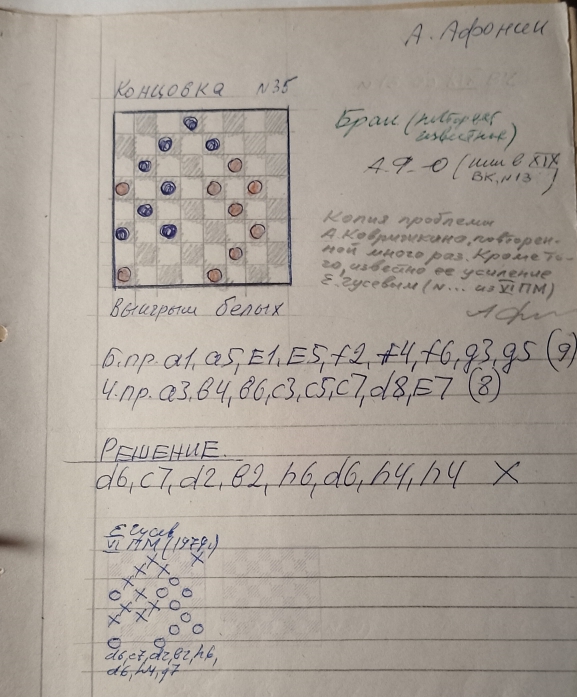 А. Афонин
Концовка №35
Брак (повторяет
известные)
А.Ф-О (или в XIX
ВК, №13)
Копия проблемы
А. Коврижкина, повторен-
ной много раз. Кроме то-
го, известно ее усиление
Е. Гусевым (N... из VI ПМ)
Выигрыш белых
Б.пр. а1, а5, Е1, Е5, f2, f4, f6, g3, g5 (9)
Ч.пр. а3, в4, в6, с3, с5, с7, d8, Е7 (8)
РЕШЕНИЕ.
d6, c7, d2, в2, h6, d6, h4, h4 X
Е. Гусев
VI ПМ (1979г)
d6, c7, d2, в2, h6,
d6, h4, g7